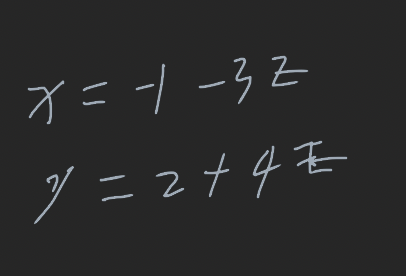 x = -1 - 3z
y = 2 + 4z